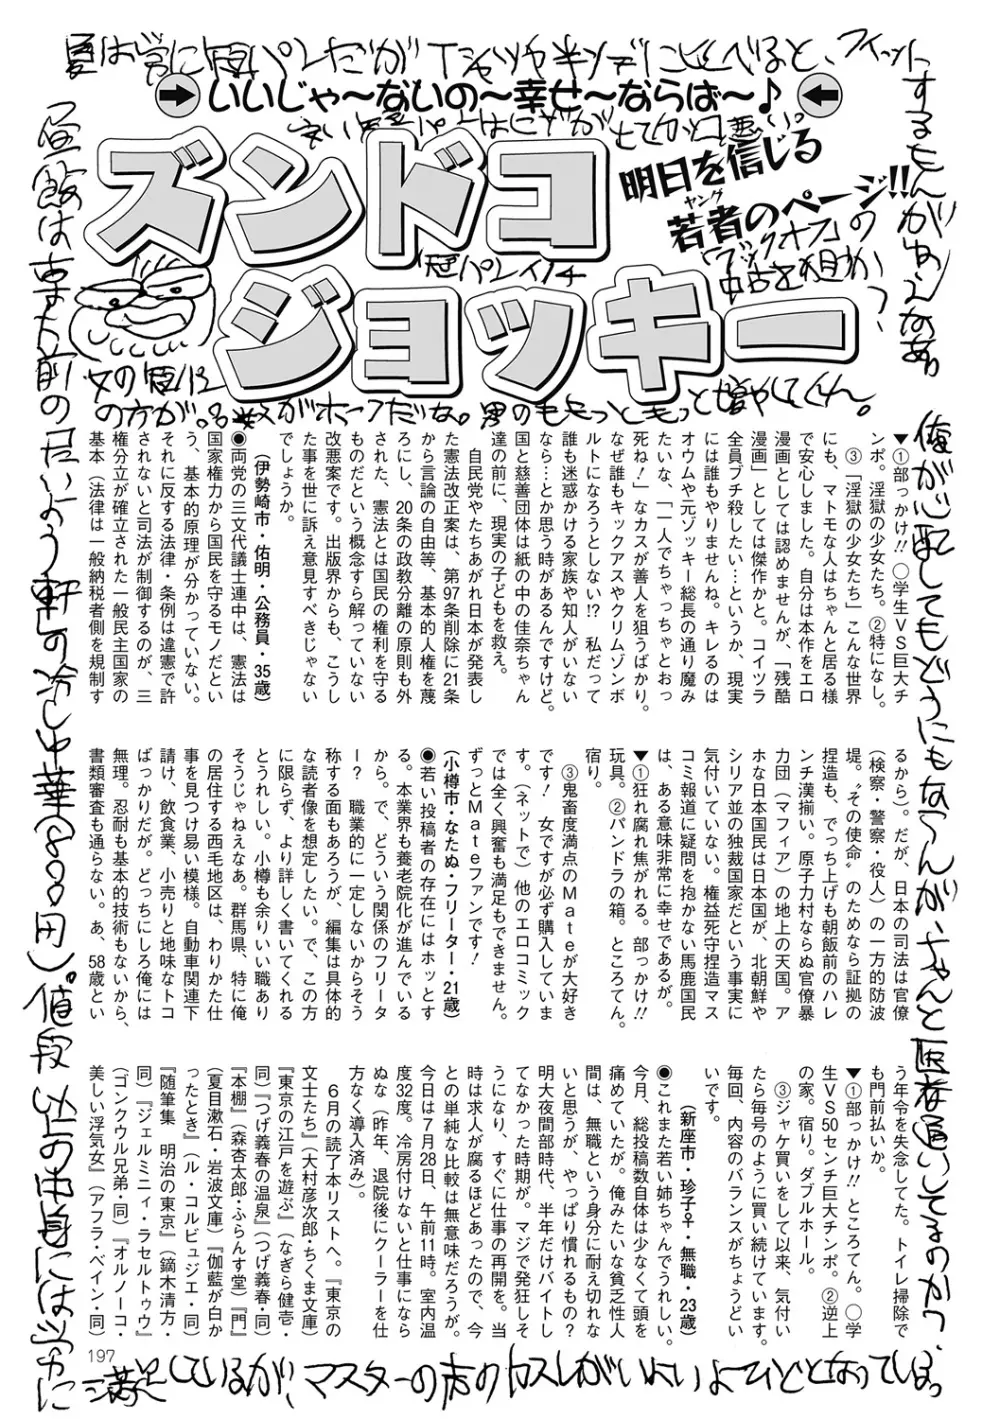 夏は常に短パンだがTシャツや半ソデに比べると、フィット
するもんがねえなあ。
いいじゃ〜ないの〜幸せ〜ならば〜♪
安い短パン
明日を信じる
若者のページ!!
ヤング
ズンドコ
ジョッキー
ブックオフの
中古を狙うか
女の短パン
の方が。
男のももっともっと増やしてくれ。
▼①部っかけ!! 〇学生VS巨大チ
ンポ。淫獄の少女たち。②特になし。
③「淫獄の少女たち」こんな世界
にも、マトモな人はちゃんと居る様
で安心しました。自分は本作をエロ
漫画としては認めませんが、「残酷
漫画」としては傑作かと。コイツラ
全員ブチ殺したい…というか、現実
には誰もやりませんね。キレるのは
オウムや元ゾッキー総長の通り魔み
たいな、「一人でちゃっちゃとおっ
死ね!」なカスが善人を狙うばかり。
なぜ誰もキックアスやクリムゾンボ
ルトになろうとしない!? 私だって
誰も迷惑かける家族や知人がいない
なら…とか思う時があるんですけど。
国と慈善団体は紙の中の佳奈ちゃん
達の前に、現実の子どもを救え。
自民党やたちあがれ日本が発表し
た憲法改正案は、第97条削除に21条
から言論の自由等、基本的人権を蔑
ろにし、20条の政教分離の原則も外
された、憲法とは国民の権利を守る
ものだという概念すら解っていない
改悪案です。出版界からも、こうし
た事を世に訴え意見すべきじゃない
でしょうか。
(伊勢崎市・佑明・公務員・35歳)
◉両党の三文代議士連中は、憲法は
国家権力から国民を守るモノだとい
う、基本的原理が分かっていない。
それに反する法律・条例は違憲で許
されないと司法が制御するのが、三
権分立が確立された一般民主国家の
基本(法律は一般納税者側を規制す
るから)。だが、日本の司法は官僚
(検察・警察・役人)の一方的防波
堤。〝その使命〟のためなら証拠の
捏造も、でっち上げも朝飯前のハレ
ンチ漢揃い。原子力村ならぬ官僚暴
力団(マフィア)の地上の天国。ア
ホな日本国民は日本国が、北朝鮮や
シリア並の独裁国家だという事実に
気付いていない。権益死守捏造マス
コミ報道に疑問を抱かない馬鹿国民
は、ある意味非常に幸せであるが。
▼①狂れ腐れ焦がれる。部っかけ!!
玩具。②パンドラの箱。ところてん。
宿り。
③鬼畜度満点のMateが大好き
です! 女ですが必ず購入していま
す。(ネットで)他のエロコミック
では全く興奮も満足もできません。
ずっとMateファンです!
(小樽市・なたぬ・フリーター・21歳)
◉若い投稿者の存在にはホッとす
る。本業界も養老院化が進んでいる
から。で、どういう関係のフリータ
ー? 職業的に一定しないからそう
称する面もあろうが、編集は具体的
な読者像を想定したい。で、この方
に限らず、より詳しく書いてくれる
とうれしい。小樽も余りいい職あり
そうじゃねえなあ。群馬県、特に俺
の居住する西毛地区は、わりかた仕
事を見つけ易い模様。自動車関連下
請け、飲食業、小売りと地味なトコ
ばっかりだが。どっちにしろ俺には
無理。忍耐も基本的技術もないから、
書類審査も通らない。あ、58歳とい
う年令を失念してた。トイレ掃除で
も門前払いか。
▼①部っかけ!! ところてん。〇学
生VS50センチ巨大チンポ。②逆上
の家。宿り。ダブルホール。
③ジャケ買いをして以来、気付い
たら毎号のように買い続けています。
毎回、内容のバランスがちょうどい
いです。
(新座市・珍子♀・無職・23歳)
◉これまた若い姉ちゃんでうれしい。
今月、総投稿数自体は少なくて頭を
痛めていたが。俺みたいな貧乏性人
間は、無職という身分に耐え切れな
いと思うが、やっぱり慣れるもの?
明大夜間部時代、半年だけバイトし
てなかった時期が。マジで発狂しそ
うになり、すぐに仕事の再開を。当
時は求人が腐るほどあったので、今
との単純な比較は無意味だろうが。
今日は7月28日、午前11時。室内温
度32度。冷房付けないと仕事になら
ぬな(昨年、退院後にクーラーを仕
方なく導入済み)。
6月の読了本リストへ。『東京の
文士たち』(大村彦次郎・ちくま文庫)
『東京の江戸を遊ぶ』(なぎら健壱・
同)『つげ義春の温泉』(つげ義春・同)
『本棚』(森杏太郎・ふらんす堂)『門』
(夏目漱石・岩波文庫)『伽藍が白か
ったとき』(ル・コルビュジエ・同)
『随筆集 明治の東京』(鏑木清方・
同)『ジェルミニィ・ラセルトゥウ』
(ゴンクウル兄弟・同)『オルノーコ・
美しい浮気女』(アフラ・ベイン・同)
俺が心配してもどうにもならんが、ちゃんと医者通いしてるのか?
昼飯は
前の
軒の冷し中華(800円)。値段以上の中身には
満足しているが、マスターの
197